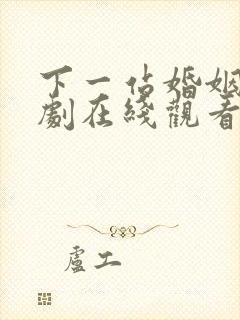 下一站婚姻
劇在綫觀看
盧工